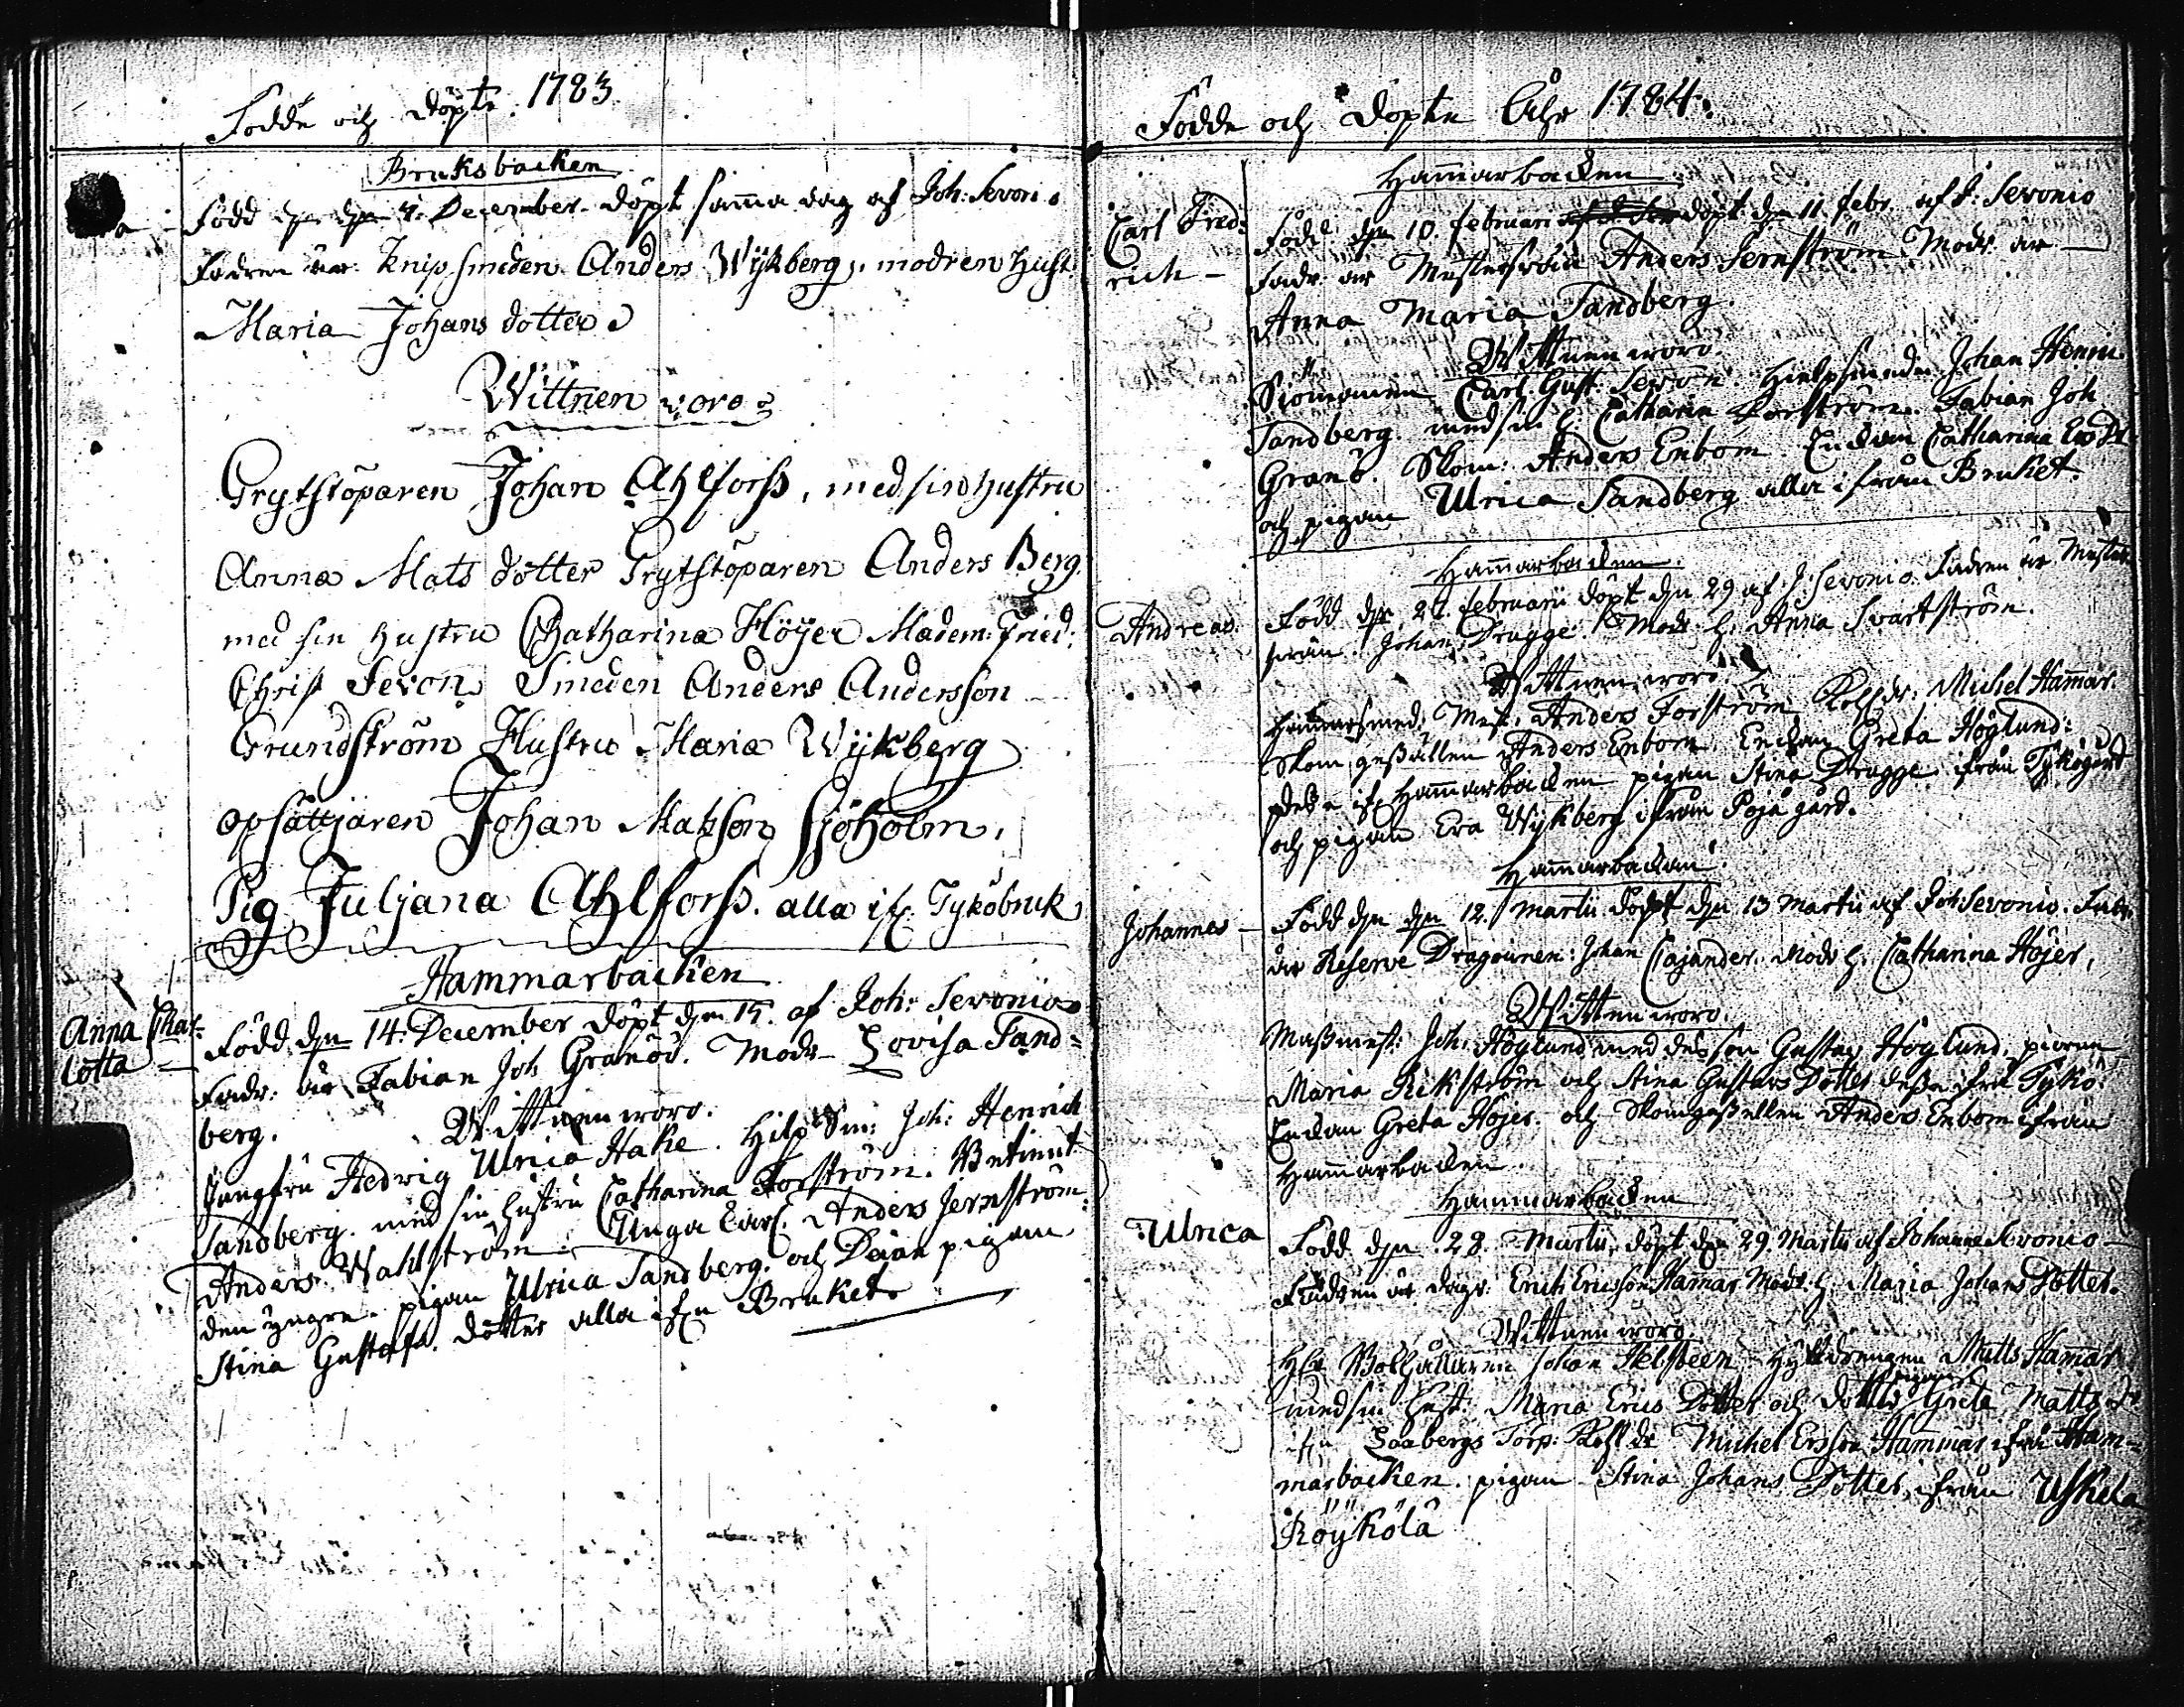 Födde och döpte. 1783
Bruksbacken
Född den 7. December. döpt samma dag af Joh: Sevonio
Fadren är Knipsmeden Anders Wijkberg, modren Hust
Maria Johans dotter
Wittnen voro
Grytstöparen Johan Ahlforss, med sin hustru
Anna Mats dotter Grytstöparen Anders Berg.
med sin hustru Chatharina Höijer Madem: Fried:
Christ Sevon, Smeden Anders Andersson
Grundström Hustru Maria Wijkberg
opsättjaren Johan Matsson Sjöholm,
Pig Juljana Ahlforss. alla ifr. Tykö bruk
Hammarbacken
Anna Char=
lotta
Född den 14. December döpt den 15. af Joh: Sevonio
Fadr: är Fabian Joh Granöö. Modr Lovisa Sand=
berg.
Wittnen woro.
Jungfru Hedvig Ulrica Hake. Hilp Sm: Joh: Henrich
Sandberg. med sin hustru Catharina Forström.
Anders Wahlström. Unga Carl. Anders Jernström
den yngre. pigan Ulrica Sandberg. och pigan
Stina Gustafs. dotter alla ifrn Bruket
Födde och Döpte Åhr 1784.
Hammarbacken
Carl Fred=
rich
Född den 10. Februari döpt den 11 febr. af J: Sevonio
Fadr. är Mestersvän Anders Jernström Modr. är
Anna Maria Sandberg.
Wittnen woro.
Carl Gust. Sevon. Hielpsmeden Johan Henri
Sandberg. med sin h. Catharin Forström. Fabian Joh
Granö. Skom: Anders Enbom. Enckan Catharina
och pigan Ulrica Sandberg alla ifrån Bruket.
Hammarbacken.
Andreas.
Född den 28. Februarii döpt den 29 af J: Sevonio Fadren är Mester
svän. Johan Drugge. Modr h. Anna Svartström.
Wittnen woro.
Hammarsmed: Mest. Anders Forström Michel Hammar.
Skom gesällen Anders Enbom. Enckan Greta Höglund:
dessa ifr. Hammarbacken pigan Stina Drugge ifrån Tykögård
och pigan Eva Wijkberg ifrån Poja gård.
Hammarbackan.
Johannes
Född den 12. Martii döpt den 13 Martii af Joh Sevonio. Fadr
är Reserve Dragounen: Johan Cajander. Modr h. Catharina Höjer.
Wittnen woro.
Massmest: Joh: Höglund med dess son Gustav Höglund, pigorna
Maria Rikström och Stina Gustavs Dotter dessa ifrån Tykö
Enckan Greta Höjer. och Skomgesellen Anders Enbom ifrån
Hammarbacken.
Hammarbacken
Ulrica
Född den 28. Martii, döpt den 29. Martii af Johanne Sevonio
Fadren är dagk. Erich Ericsson Hammar Modr. h. Maria Johans Dotter.
Wittnen woro.
Hr Bokhållaren Johan Helsteen, Matts Hammar
med sin hust. Maria Erics Dotter och dotter pigan Greta Matts dr
ifrn Saabergs Torp: Michel Ersson Hammar ifrån Ham=
marbacken. pigan Stina Johans Dotter, ifrån Uskela
Röykölä